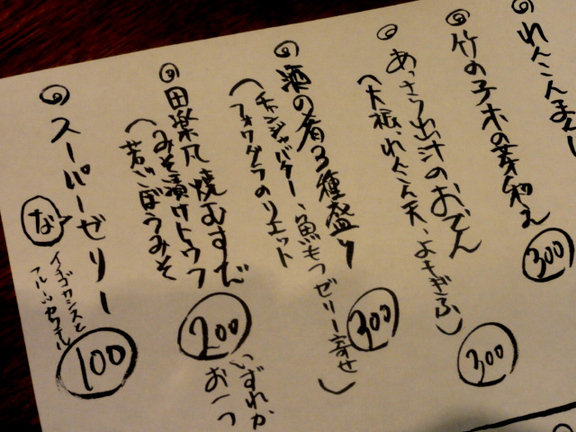 れんこんまんじ
竹の子木の芽和え
300
あっさり出汁のおでん
(大根、れんこん天、よもぎふ)
300
酒の肴3種盛り
(チャンジャバター、魚もつゼリー寄せ
フォワグラのリエット)
300
田楽風焼むすび
(みそ漬けトウフ
若ごぼうみそ
200
いずれか
お一つ
スーパーゼリー
な
フルーツカクテル
100